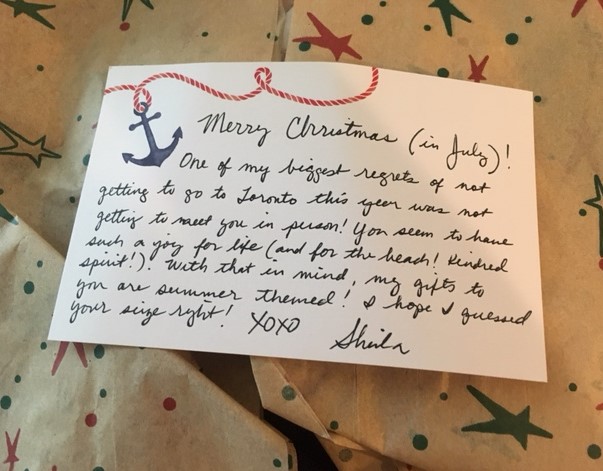 Merry Christmas (in July)!
One of my biggest regrets of not
getting to go to Toronto this year was not
getting to meet you in person! You seem to have
such a yoy for life (and for the beach! Kindred
spirit!). With that in mind, my gifts to
you are summer themed! I hope I guessed
your size right! XOXO Sheila